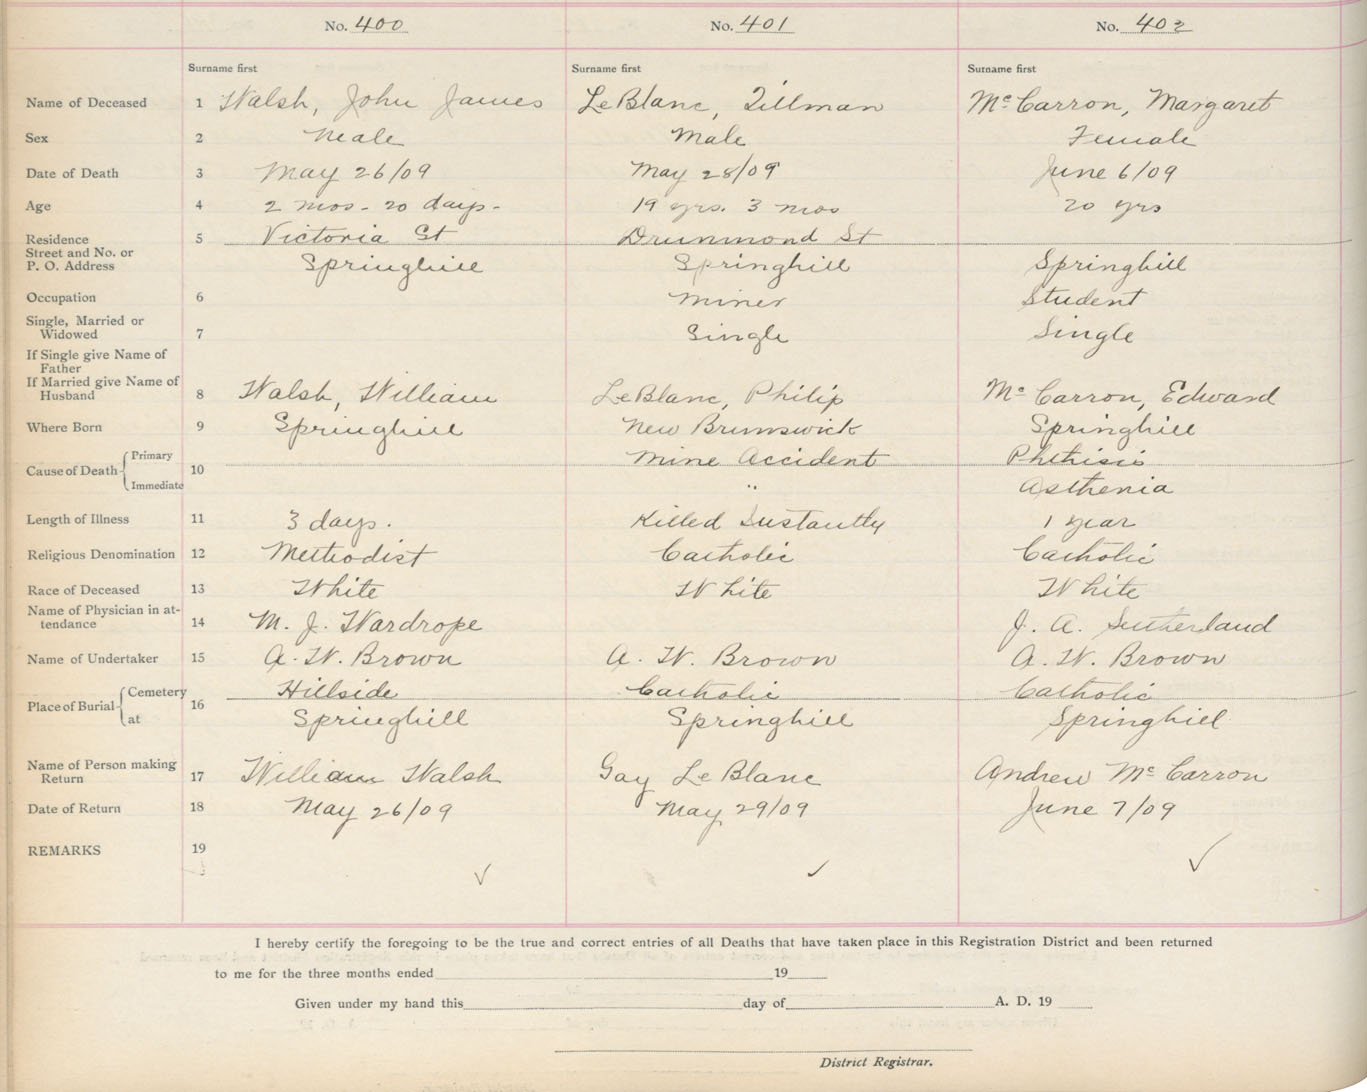 No. 400 No. 401 No. 402
Surname first Surname first Surname first
Name of Deceased 1 Walsh, John James LeBlanc, Tillman Mc Carron, Margaret
Sex 2 Male Male Female
Date of Death 3 May 26/09 May 28/09 June 6/09
Age 4 2 mos - 20 days - 19 yrs. 3 mos 20 yrs
Residence 5 Victoria St Drummond St
Street and No. or
P. O. Address Springhill Springhill Springhill
Occupation 6 Miner Student
Single, Married or
Widowed 7 Single Single
If Single give Name of
Father
If Married give Name of
Husband 8 Walsh, William LeBlanc, Philip Mc Carron, Edward
Where Born 9 Springhill New Brunswick Springhill
Cause of Death Primary 10 Mine Accident Phthisis
Immediate " Asthenia
Length of Illness 11 3 days. Killed Instantly 1 year
Religious Denomination 12 Methodist Catholic Catholic
Race of Deceased 13 White White White
Name of Physician in at-
tendance 14 M. J. Wardrope J. A. Sutherland
Name of Undertaker 15 A. W. Brown A. W. Brown A. W. Brown
Place of Burial Cemetery 16 Hillside Catholic Catholic
at Springhill Springhill Springhill
Name of Person making
Return 17 William Walsh Gay LeBlanc Andrew Mc Carron
Date of Return 18 May 26/09 May 29/09 June 7/09
REMARKS 19
I hereby certify the foregoing to be the true and correct entries of all Deaths that have taken place in this Registration District and been returned
to me for the three months ended 19
Given under my hand this day of A. D. 19
District Registrar.